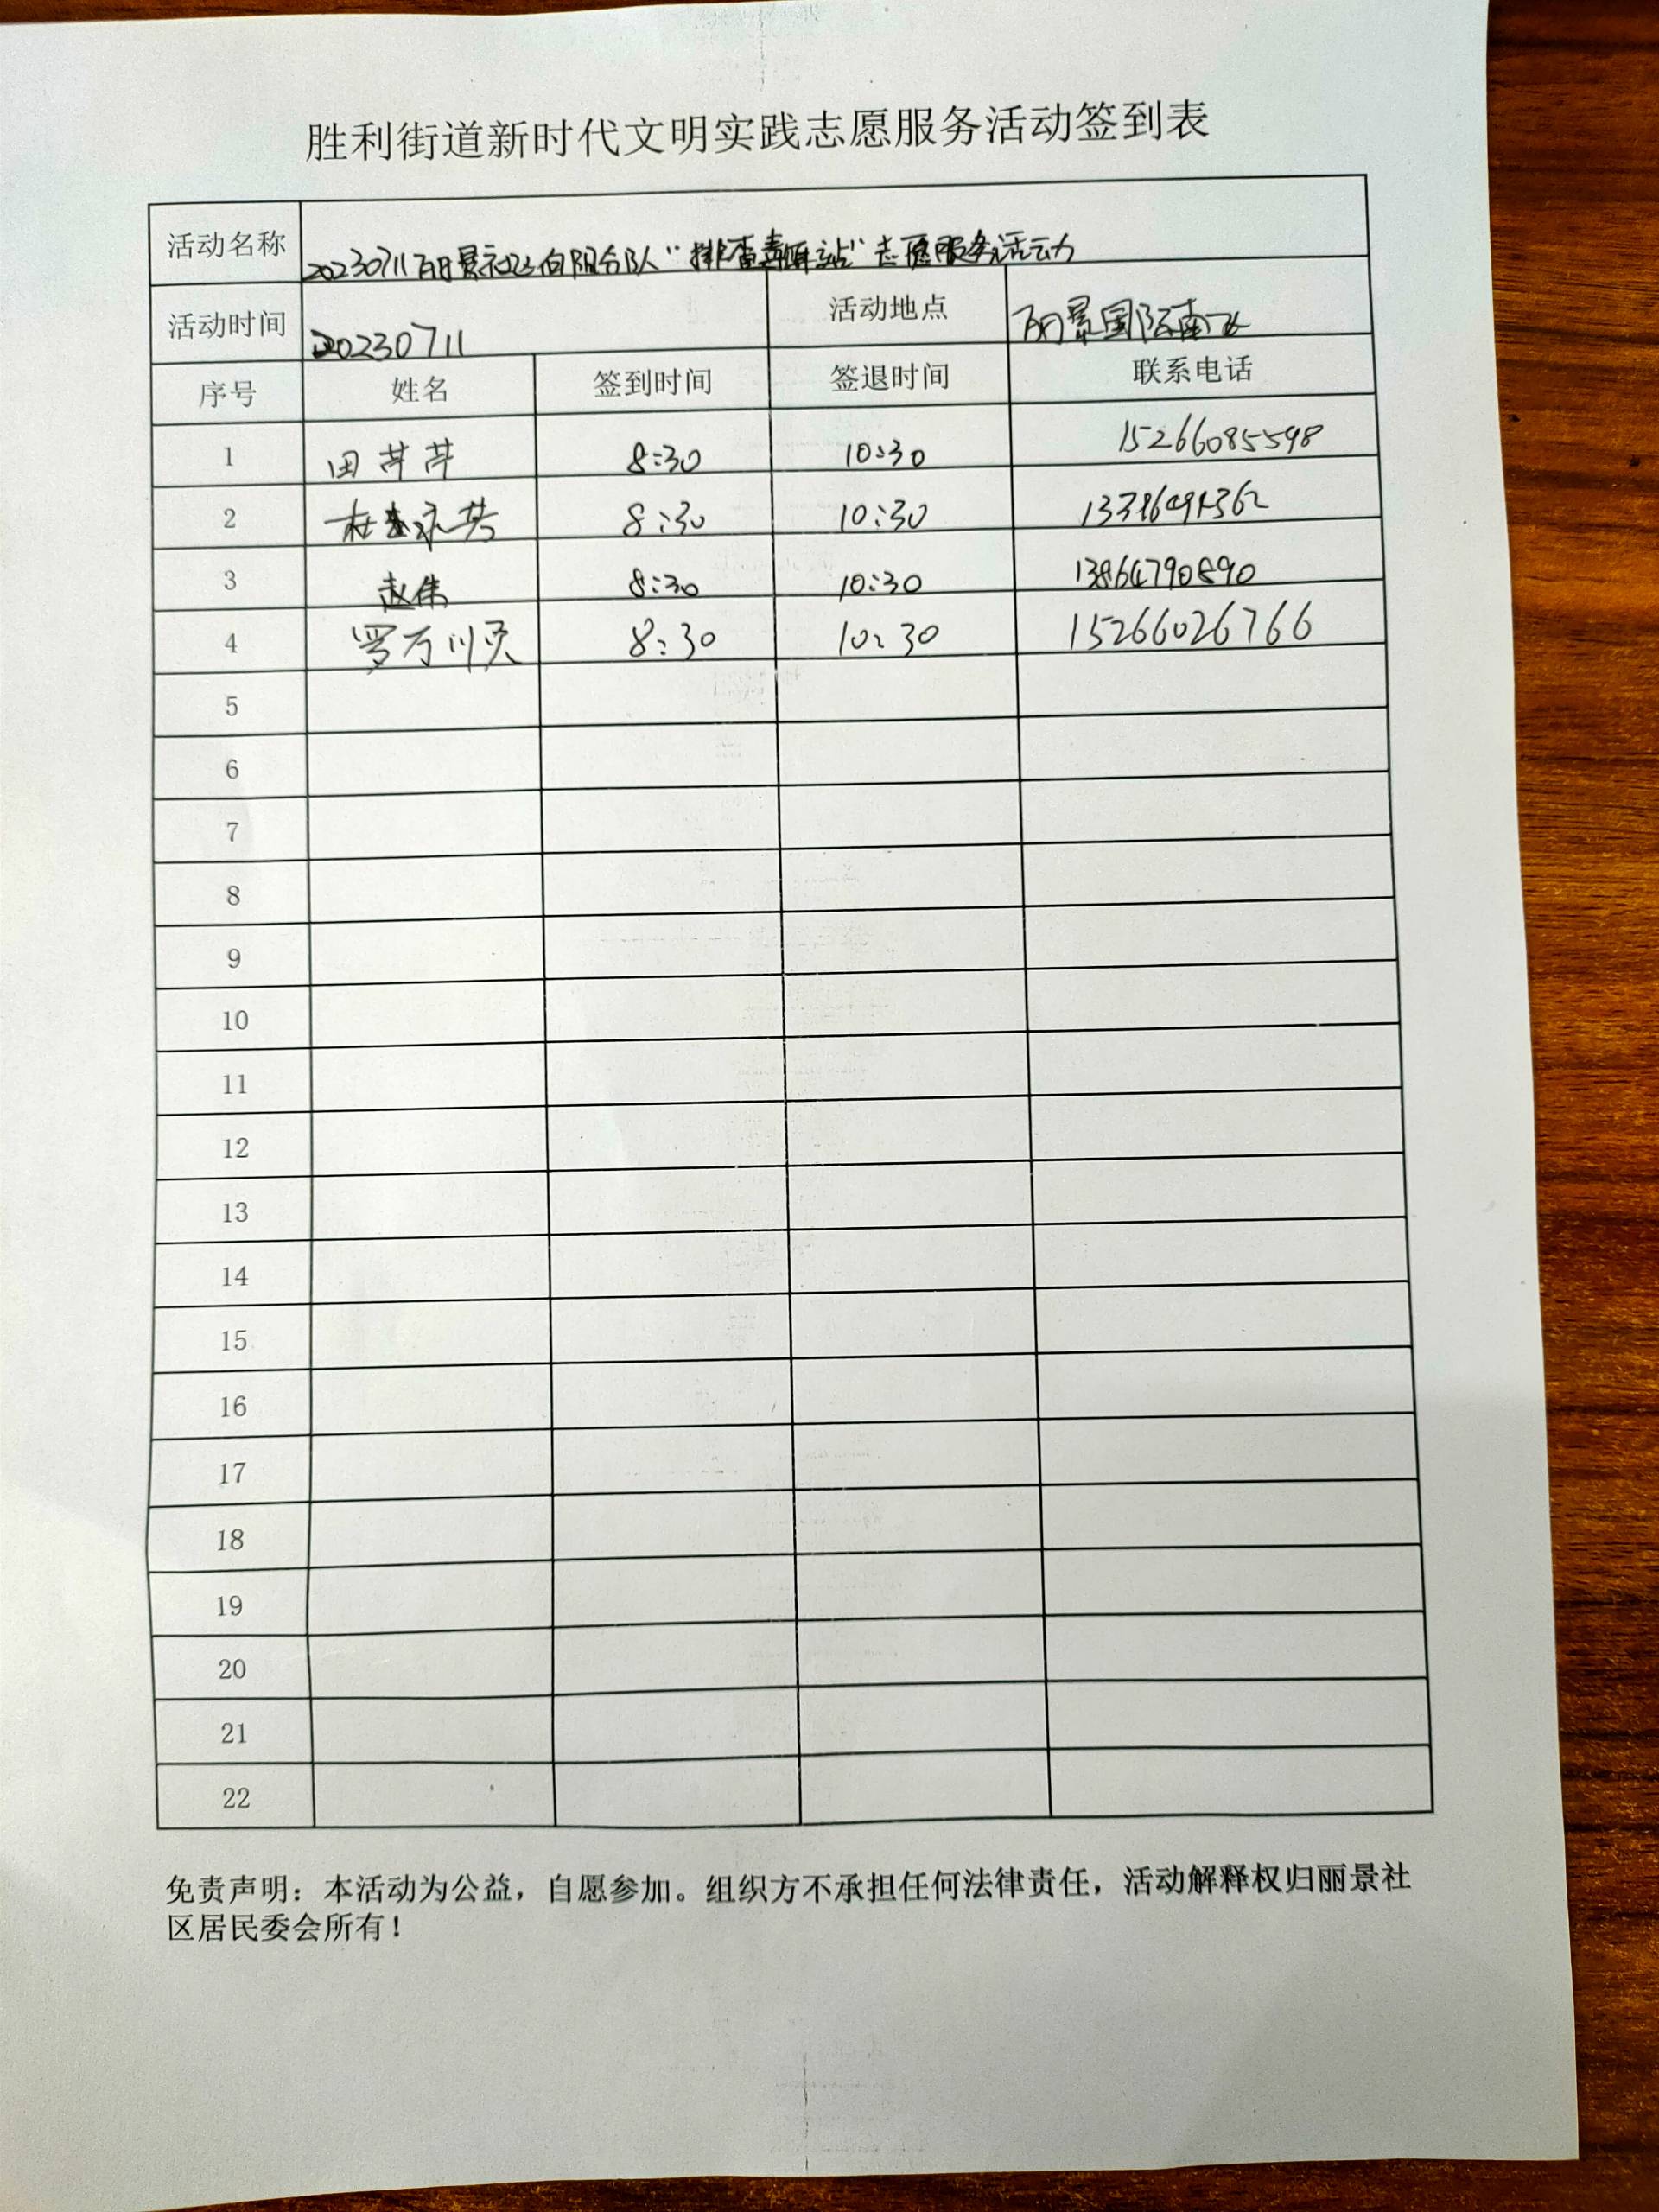 胜利街道新时代文明实践志愿服务活动签到表
活动名称 20230711丽景社区向阳合队“排查”志愿服务活动
活动时间 20230711 活动地点 丽景国际南区
序号 姓名 签到时间 签退时间 联系电话
1 田芹芹 8:30 10:30 15266085598
2 杜永芳 8:30 10:30
3 赵伟 8:30 10:30 13864790890
4 罗万顺 8:30 10:30 15266026766
5
6
7
8
9
10
11
12
13
14
15
16
17
18
19
20
21
22
免责声明：本活动为公益，自愿参加。组织方不承担任何法律责任，活动解释权归丽景社
区居民委会所有！